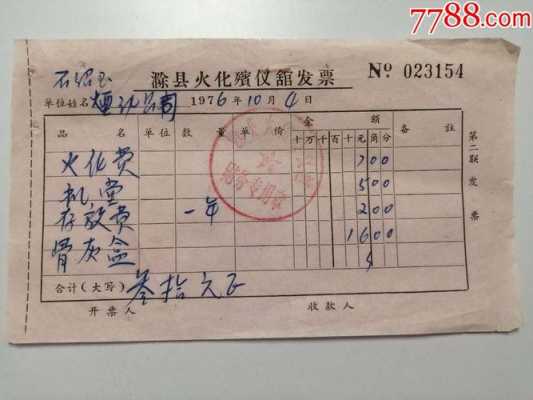 7788.com
滁县火化殡仪舘发票 No 023154
石绍玉
单位姓名 烟酒公司 1976年10月4日
品名 单位 数量 单价 金额 备註
十万千百十元角分
火化费 700
礼堂 500
存放费 一年 200
骨灰盒 1600
合计(大写) 叁拾元正
开票人 收款人
第二联发票
财务专用章